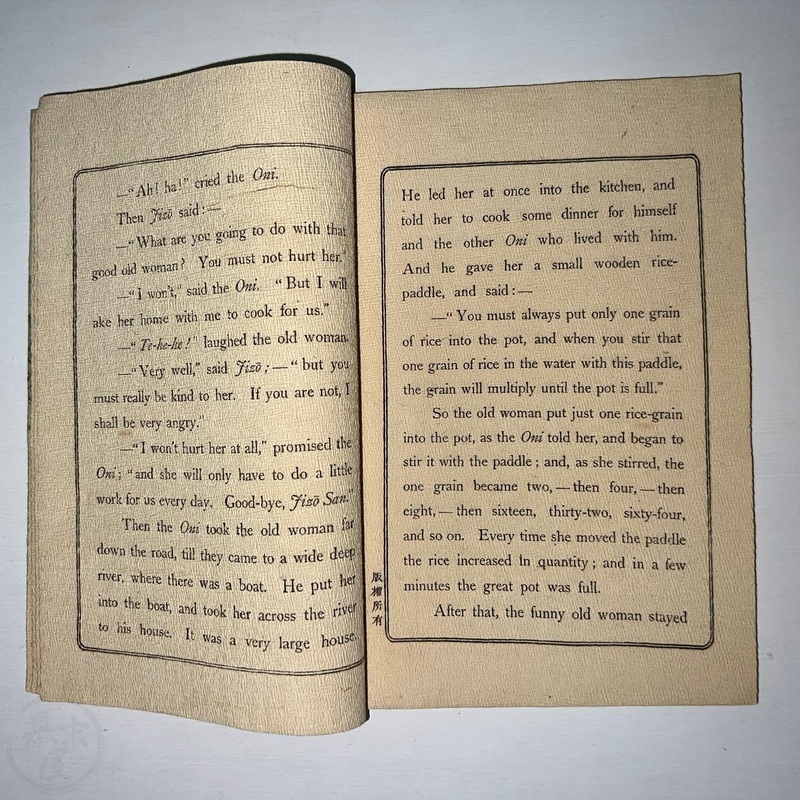 —"Ah! ha!" cried the Oni.
Then Jizō said:—
—"What are you going to do with that
good old woman? You must not hurt her."
—"I won't," said the Oni. "But I will
ake her home with me to cook for us."
—"Te-he-he!" laughed the old woman.
—"Very well," said Jizō;—"but you
must really be kind to her. If you are not, I
shall be very angry."
—"I won't hurt her at all," promised the
Oni; "and she will only have to do a little
work for us every day. Good-bye, Jizō San."
Then the Oni took the old woman far
down the road, till they came to a wide deep
river, where there was a boat. He put her
into the boat, and took her across the river
to his house. It was a very large house.
版權所有
He led her at once into the kitchen, and
told her to cook some dinner for himself
and the other Oni who lived with him.
And he gave her a small wooden rice-
paddle, and said:—
—"You must always put only one grain
of rice into the pot, and when you stir that
one grain of rice in the water with this paddle,
the grain will multiply until the pot is full."
So the old woman put just one rice-grain
into the pot, as the Oni told her, and began to
stir it with the paddle; and, as she stirred, the
one grain became two,—then four,—then
eight,—then sixteen, thirty-two, sixty-four,
and so on. Every time she moved the paddle
the rice increased in quantity; and in a few
minutes the great pot was full.
After that, the funny old woman stayed